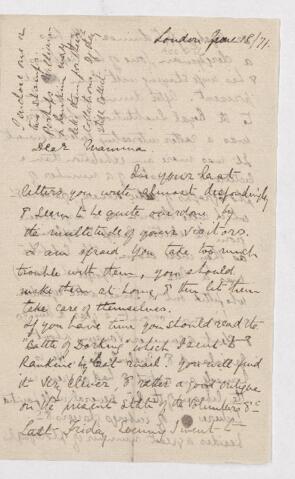 London June 18/71.
Dear Mamma
In your last
letters you write almost despondingly
& seem to be quite overdone by
the multitude of your visitors.
I am afraid you take too much
trouble with them, you should
make them at home, & then let them
take care of themselves.
If you have time you should read the
"Battle of Dorking" which I sent to
Rankine by last mail & you will find
it very clever, & rather a good critique
on the present state of the Volunteers &c
Last Friday Evening I went
I enclose one or
two stamps
perhaps William
& Rankine may
like them for their
collections if they
still collect